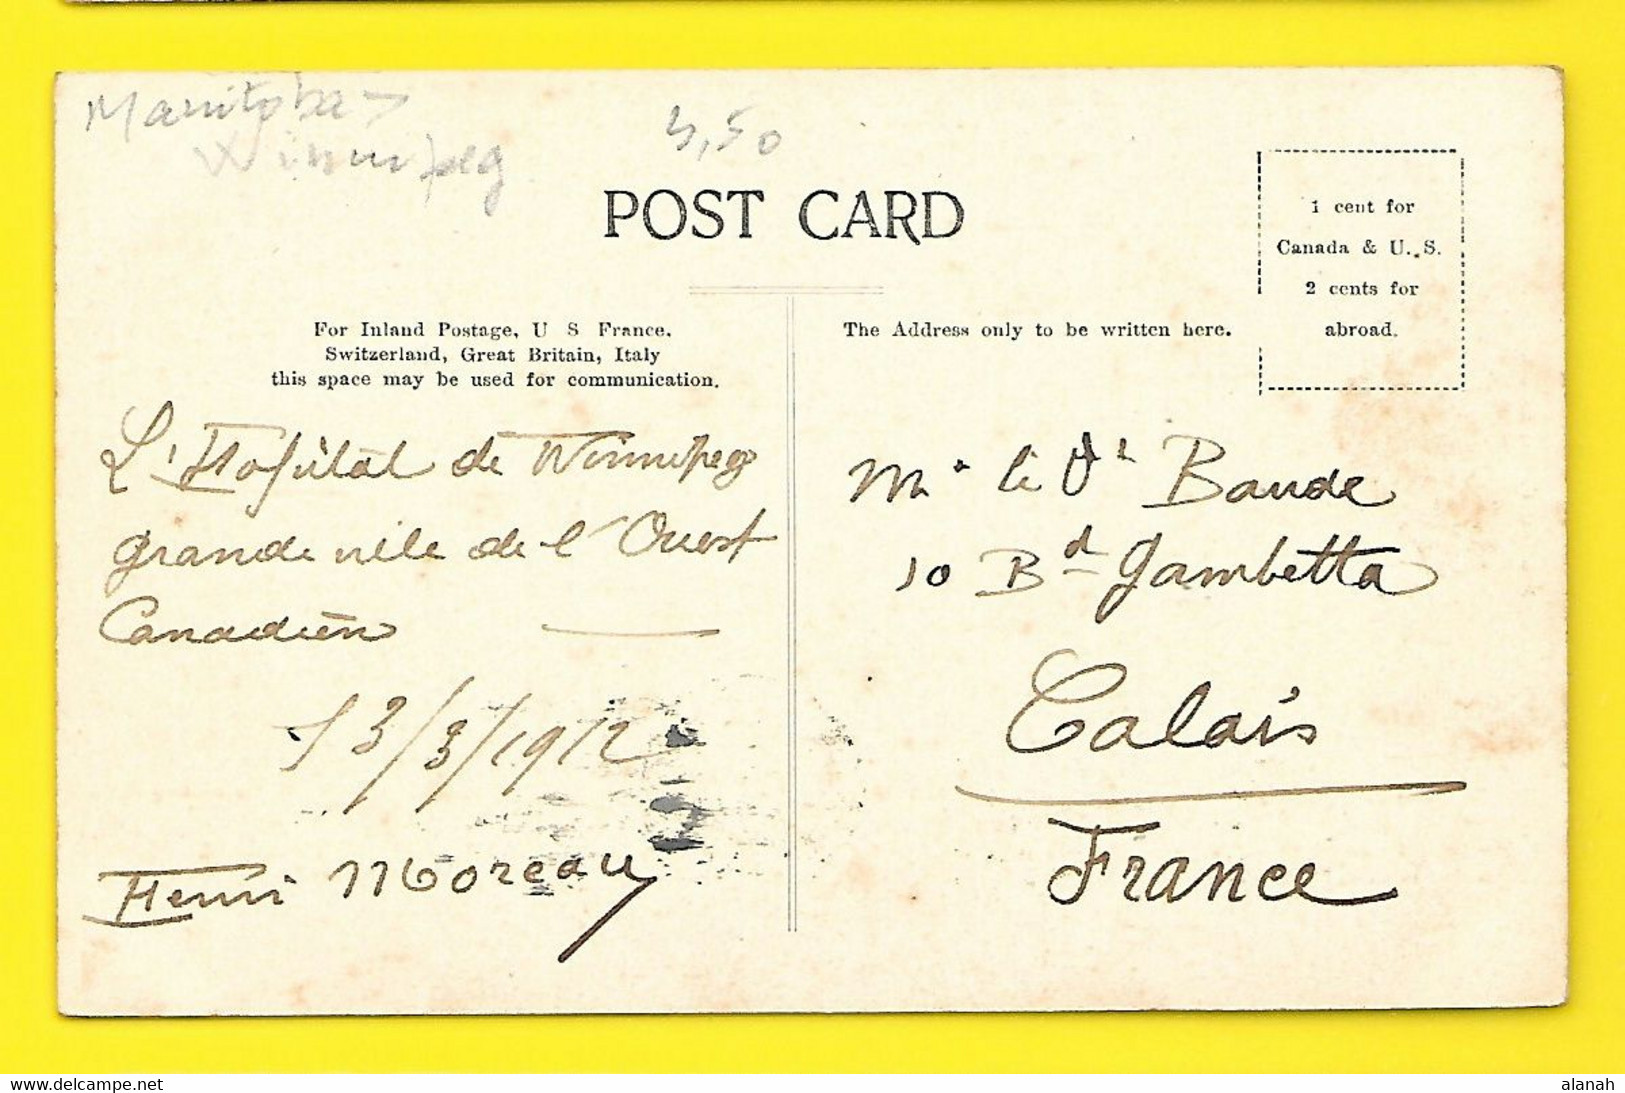 Manitoba
Winnipeg
3,50
POST CARD
1 cent for
Canada & U. S.
2 cents for
abroad.
For Inland Postage, U S France.
Switzerland, Great Britain, Italy
this space may be used for communication.
The Address only to be written here.
L'Hopital de Winnipeg
grande ville de l'Ouest
Canadien
13/3/1912
Henri Moreau
Mr le Dr Baude
10 Bd Gambetta
Calais
France
www.delcampe.net
alanah